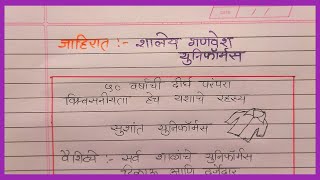 जाहिरात :- शालेय गणवेश
युनिफॉर्मस
५० वर्षाची दीर्घ परंपरा
विश्वसनीयता हेच यशाचे रहस्य
सुशांत युनिफॉर्मस
वैशिष्टये :- सर्व शाळांचे युनिफॉर्मस
टिकाऊ आणि दर्जेदार